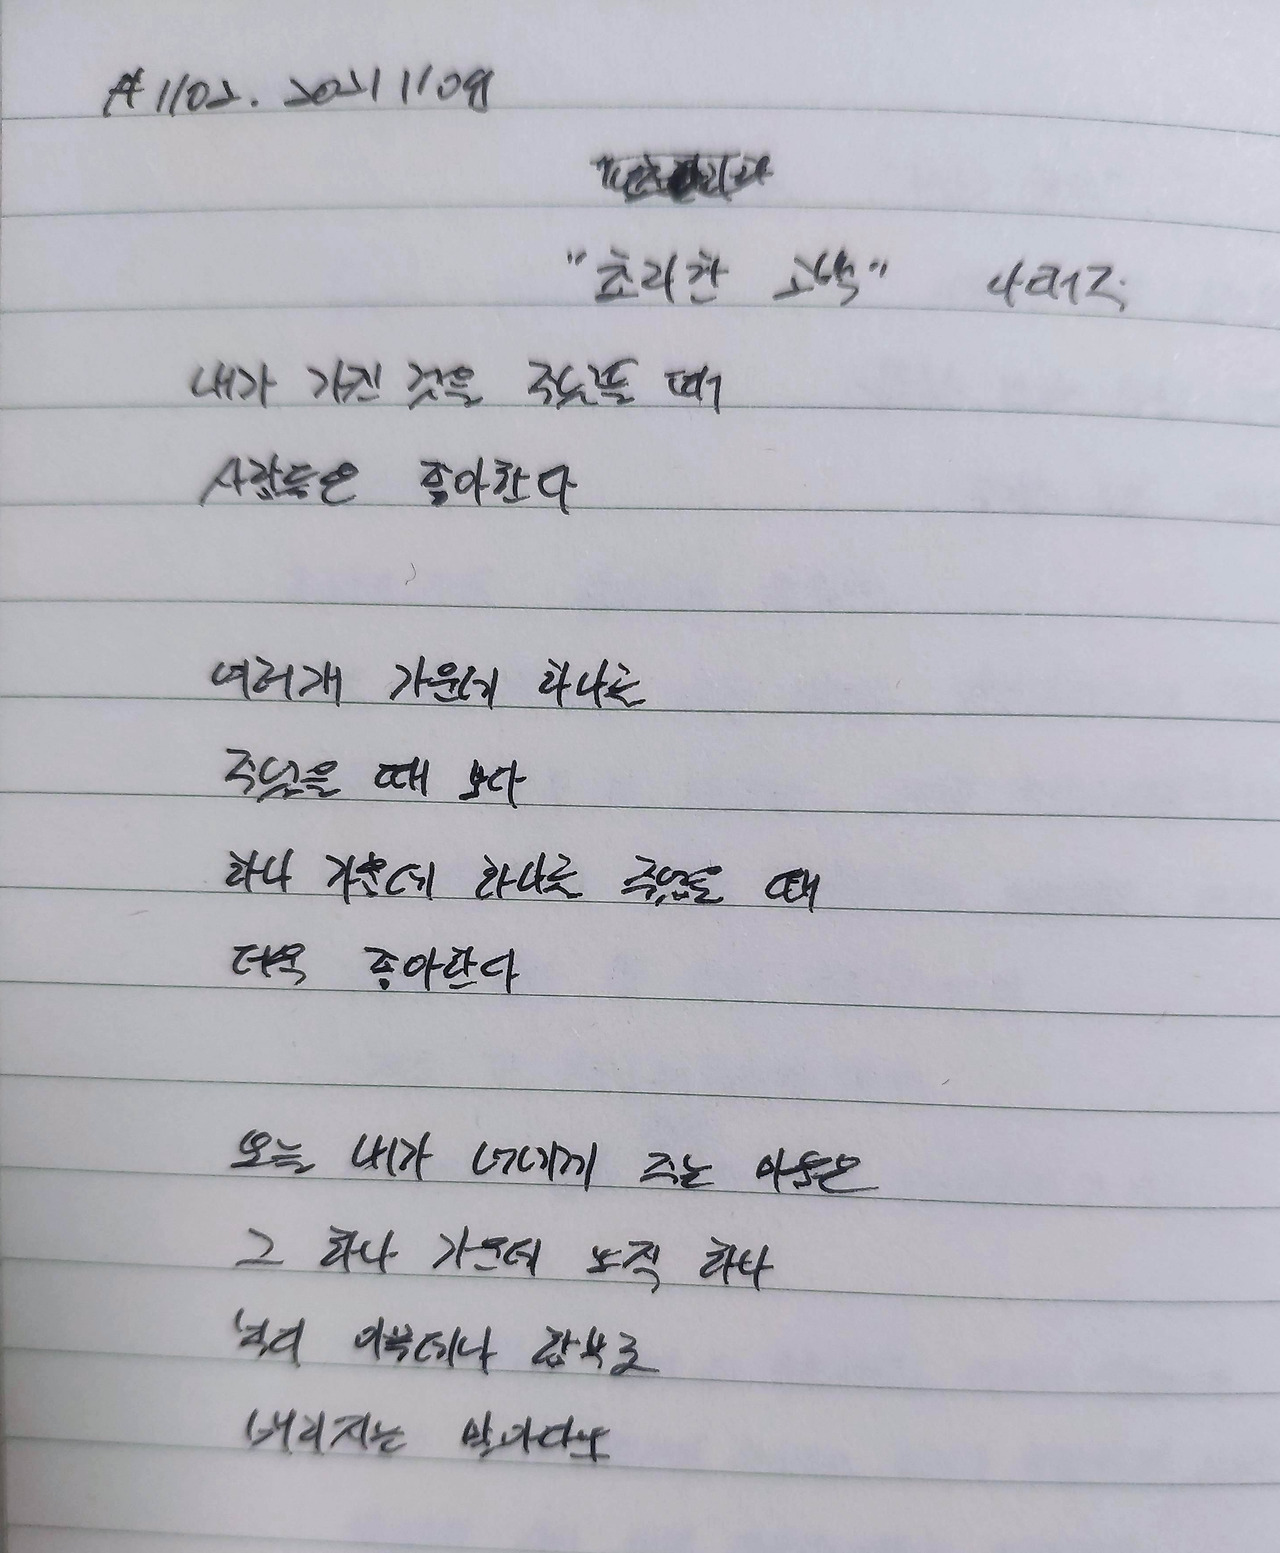 #1102. 20211109
"초라한 고백" 나태주
내가 가진 것을 주었을 때
사람들은 좋아한다
여러개 가운데 하나를
주었을 때 보다
하나 가운데 하나를 주었을 때
더욱 좋아한다
오늘 내가 너에게 주는 마음은
그 하나 가운데 오직 하나
부디 아무데나 함부로
버리지는 말아다오